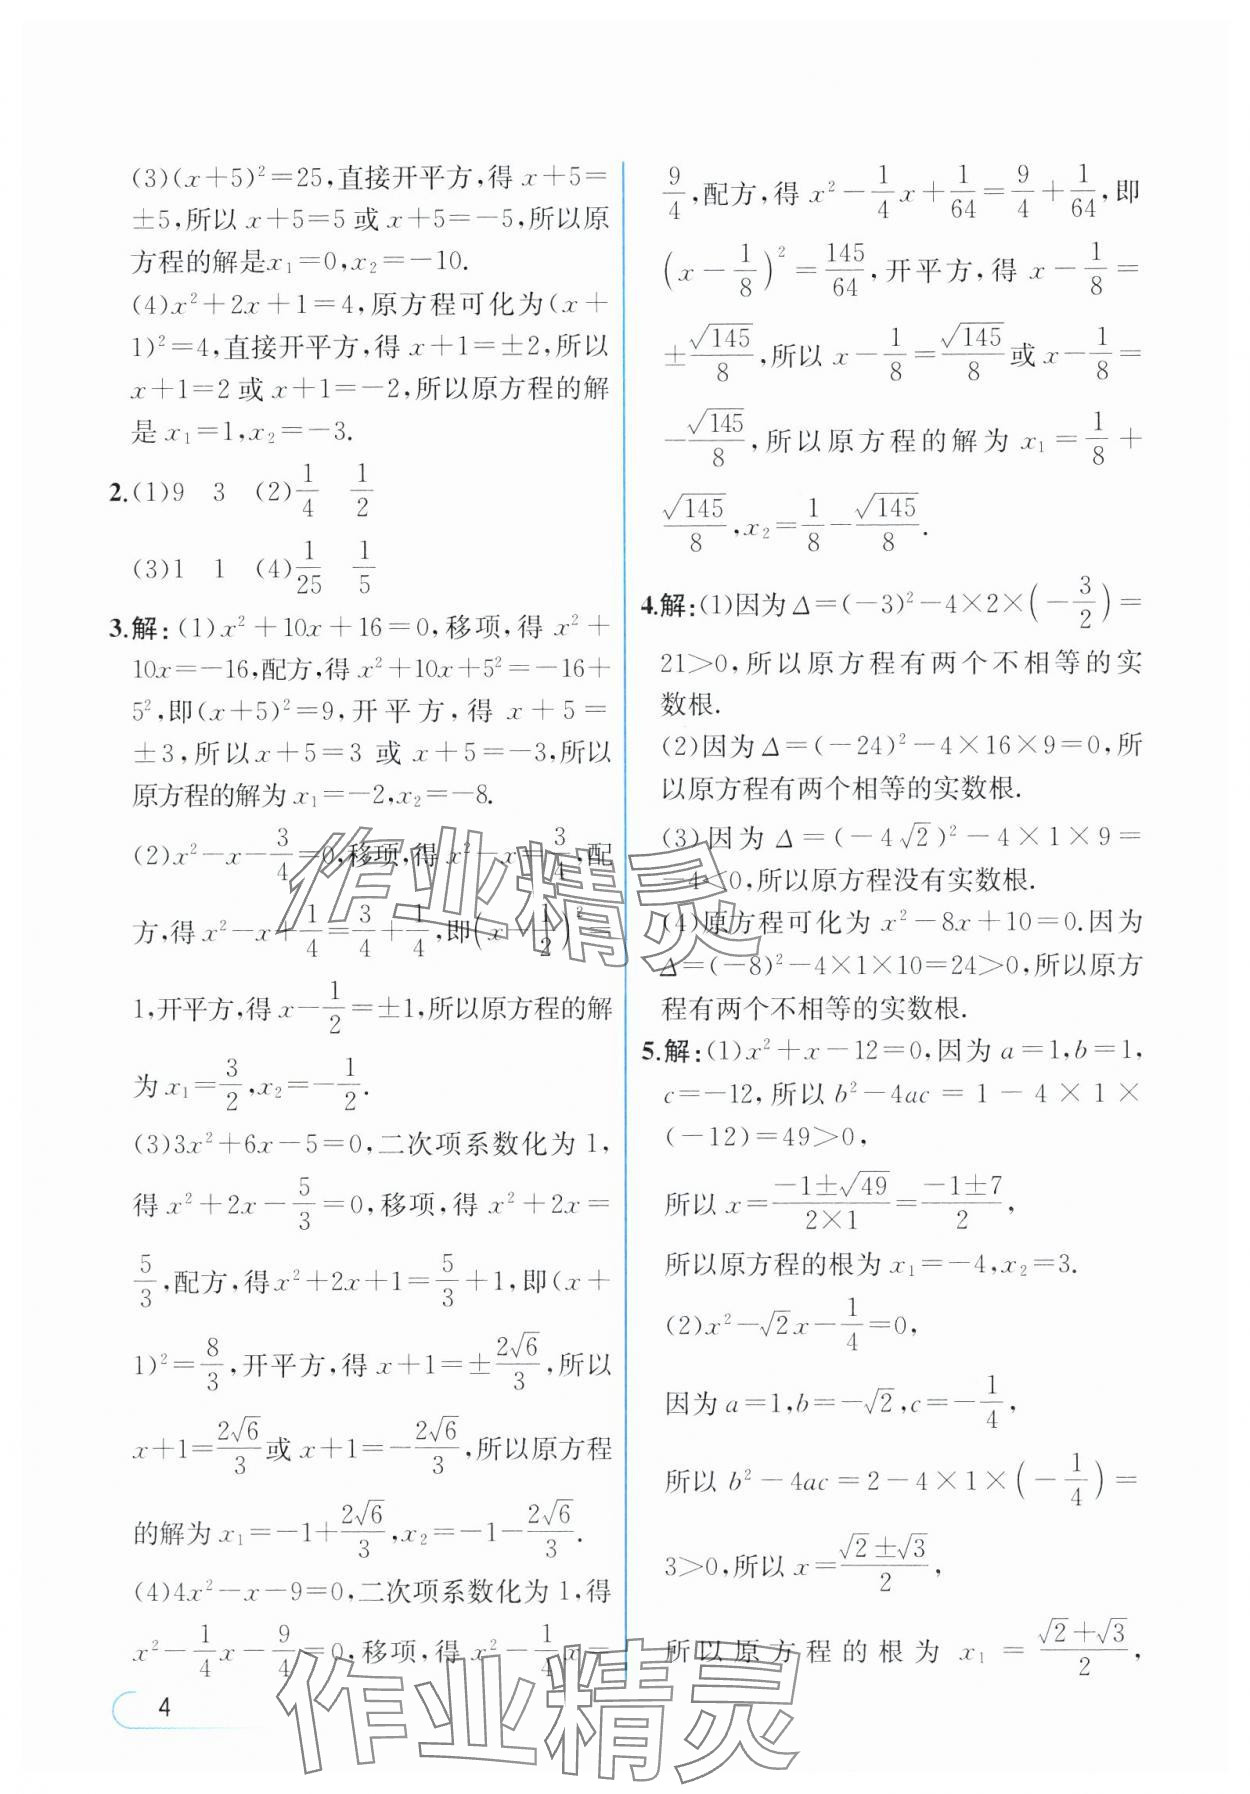 (3)(x+5)²=25,直接开平方,得 x+5=
±5,所以 x+5=5 或 x+5=-5,所以原
方程的解是x₁=0,x₂=-10.
(4)x²+2x+1=4,原方程可化为(x+
1)²=4,直接开平方,得 x+1=±2,所以
x+1=2 或 x+1=-2,所以原方程的解
是 x₁=1,x₂=-3.
2.(1)9 3 (2)1/4 1/2
(3)1 1 (4)1/25 1/5
3.解:(1)x²+10x+16=0,移项,得 x²+
10x=-16,配方,得 x²+10x+5²=-16+
5²,即(x+5)²=9,开平方,得 x+5=
±3,所以x+5=3 或 x+5=-3,所以
原方程的解为 x₁=-2,x₂=-8.
(2)x²-x-3/4=0,移项,得 x²-x=3/4,配
方,得 x²-x+1/4=3/4+1/4,即(x-1/2)²=
1,开平方,得 x-1/2=±1,所以原方程的解
为 x₁=3/2,x₂=-1/2.
(3)3x²+6x-5=0,二次项系数化为 1,
得 x²+2x-5/3=0,移项,得 x²+2x=
5/3,配方,得x²+2x+1=5/3+1,即(x+
1)²=8/3,开平方,得 x+1=±2√6/3,所以
x+1=2√6/3或 x+1=-2√6/3,所以原方程
的解为 x₁=-1+2√6/3,x₂=-1-2√6/3.
(4)4x²-x-9=0,二次项系数化为 1,得
x²-1/4x-9/4=0,移项,得 x²-1/4x=
4
9/4,配方,得 x²-1/4x+1/64=9/4+1/64,即
(x-1/8)²=145/64,开平方,得 x-1/8=
±√145/8,所以 x-1/8=√145/8或 x-1/8=
-√145/8,所以原方程的解为 x₁=1/8+
√145/8,x₂=1/8-√145/8.
4.解:(1)因为 Δ=(-3)²-4×2×(-3/2)=
21>0,所以原方程有两个不相等的实
数根.
(2)因为 Δ=(-24)²-4×16×9=0,所
以原方程有两个相等的实数根.
(3)因为 Δ=(-4√2)²-4×1×9=
-4<0,所以原方程没有实数根.
(4)原方程可化为 x²-8x+10=0.因为
Δ=(-8)²-4×1×10=24>0,所以原方
程有两个不相等的实数根.
5.解:(1)x²+x-12=0,因为 a=1,b=1,
c=-12,所以 b²-4ac=1-4×1×
(-12)=49>0,
所以 x=(-1±√49)/(2×1)=(-1±7)/2,
所以原方程的根为 x₁=-4,x₂=3.
(2)x²-√2x-1/4=0,
因为 a=1,b=-√2,c=-1/4,
所以 b²-4ac=2-4×1×(-1/4)=
3>0,所以 x=(√2±√3)/2,
所以原方程的根为 x₁=(√2+√3)/2,
作业精灵
作业精灵